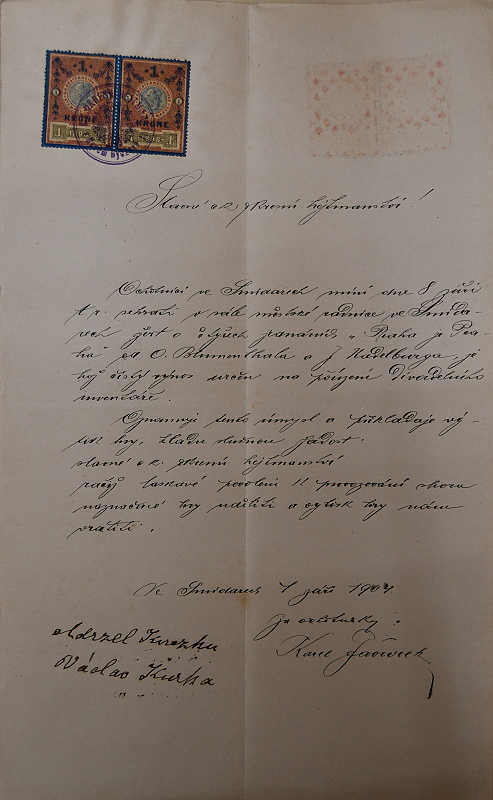 1 1
KRONE KRONE
1 1898 1 1 1898 1
Slavné c. k. okresní hejtmanství!
Ochotníci ve Smidarech míní dne 8 září
t. r. sehráti v sále městské radnice ve Smida-
rech žert o čtyřech jednáních „Praha je Pra-
ha" od O. Blumenthala a J. Kadelburga, je-
hož čistý výnos určen na pořízení Divadelního
inventáře.
Oznamují tento úmysl a přikládajíce vý-
tisk hry, kladu slušnou žádost:
slavné c. k. okresní hejtmanství
račiž laskavě povolení k provozování shora
naznačené hry uděliti a výtisk hry nám
vrátiti.
Ve Smidarech 1 září 1904.
Za ochotníky:
Karel
Václav Kurka